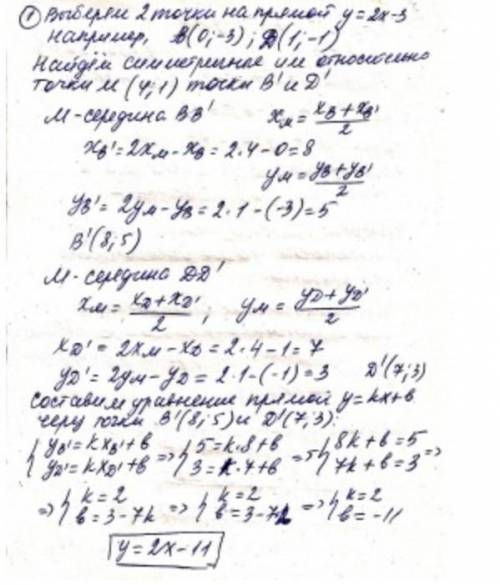 ① Выберем 2 точки на прямой y=2x-3
например, B(0;-3); D(1;-1)
Найдём симметричные им относительно
точки M (4;1) точки B' и D'
M-середина BB' xм = (xB+xB')/2
xB' = 2xм-xB = 2·4-0=8
yм = (yB+yB')/2
yB' = 2yм-yB = 2·1-(-3)=5
B'(8;5)
M-середина DD'
xм = (xD+xD')/2; yм = (yD+yD')/2
xD' = 2xм-xD = 2·4-1=7
yD' = 2yм-yD = 2·1-(-1)=3 D'(7;3)
Составим уравнение прямой y=kx+b
через точки B'(8;5) и D'(7;3):
{yB'=kxB'+b => {5=k·8+b => {8k+b=5
{yD'=kxD'+b {3=k·7+b {7k+b=3 =>
=> {k=2 => {k=2 => {k=2
{b=3-7k {b=3-7k {b=-11
y=2x-11